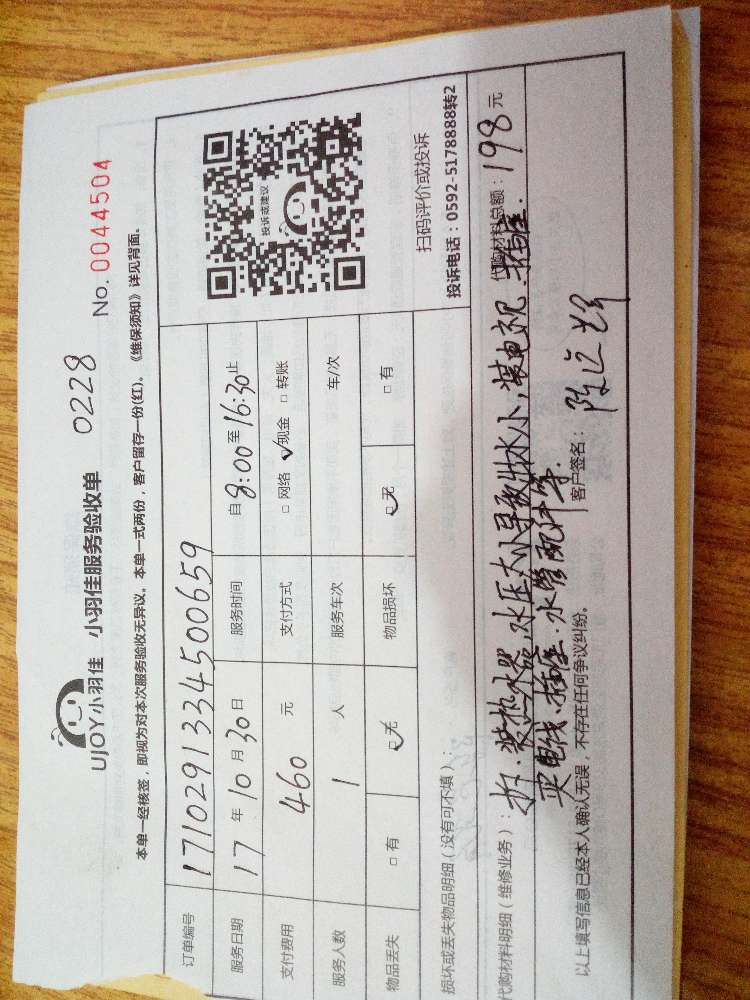 UJOY小羽佳 小羽佳服务验收单 0228 No. 0044504
本单一经核签，即视为对本次服务验收无异议。本单一式两份，客户留存一份(红)。《维保须知》详见背面。
订单编号 1710291334500659
服务日期 17 年 10 月 30 日 服务时间 自 8:00 至 16:30 止
支付费用 460 元 支付方式 □ 网络 ✓现金 □ 转账
服务人数 1 人 服务车次 车/次
物品丢失 □ 有 ✓无 物品损坏 ✓无 □ 有
投诉或建议
扫码评价或投诉
投诉电话：0592-5178888转2
损坏或丢失物品明细（没有可不填）：
代购材料明细（维修业务）： 代购材料总额：198 元
拆、装热水器，水压大小导致出水小，装电视、插座、
买电线、插座、水管配件等.
以上填写信息已经本人确认无误，不存在任何争议纠纷。 客户签名：